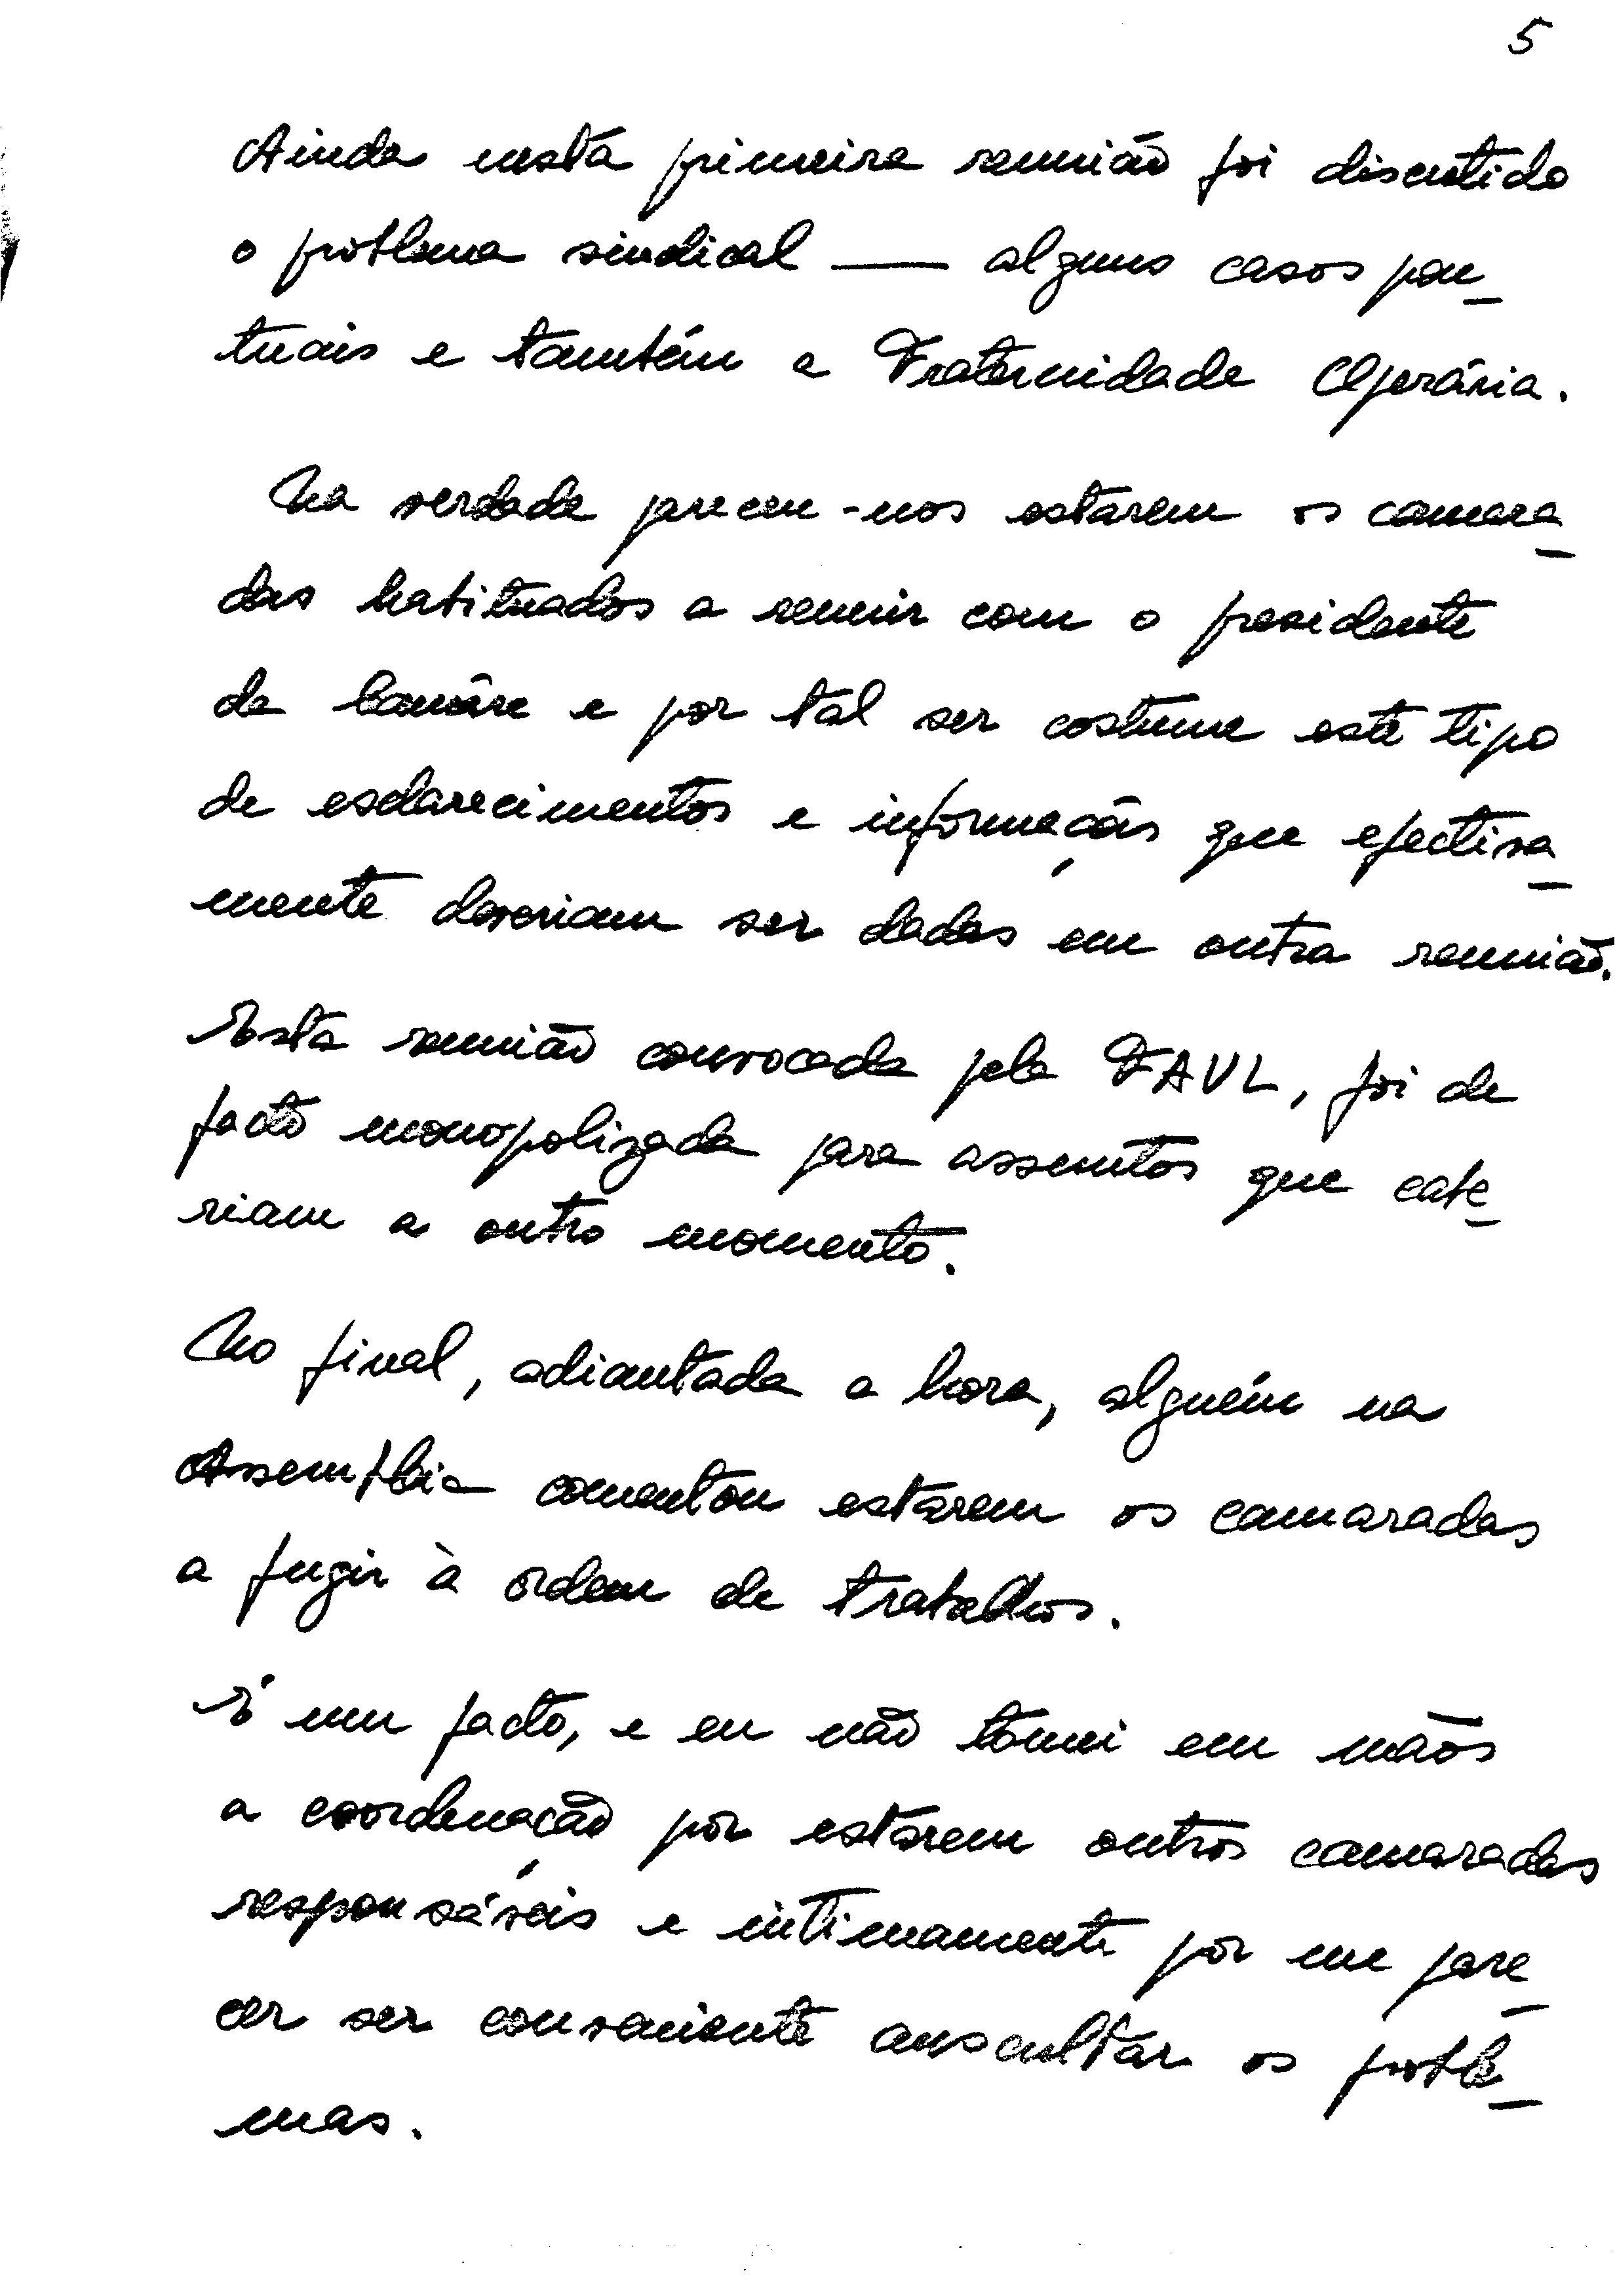 5
Ainda nesta primeira reunião foi discutido
o problema sindical — alguns casos pon_
tuais e também a Fraternidade Operária.
Na verdade pareceu-nos estarem os camara_
das habituados a reunir com o presidente
da Câmara e por tal ser costume este tipo
de esclarecimentos e informações que efectiva_
mente deveriam ser dadas em outra reunião.
Esta reunião convocada pela FAUL, foi de
facto monopolizada para assuntos que cabe_
riam a outro momento.
No final, adiantada a hora, alguém na
Assembleia comentou estarem os camaradas
a fugir à ordem de trabalhos.
É um facto, e eu não tomei em mãos
a coordenação por estarem outros camaradas
responsáveis e intimamente por me pare_
cer ser conveniente auscultar os proble_
mas.